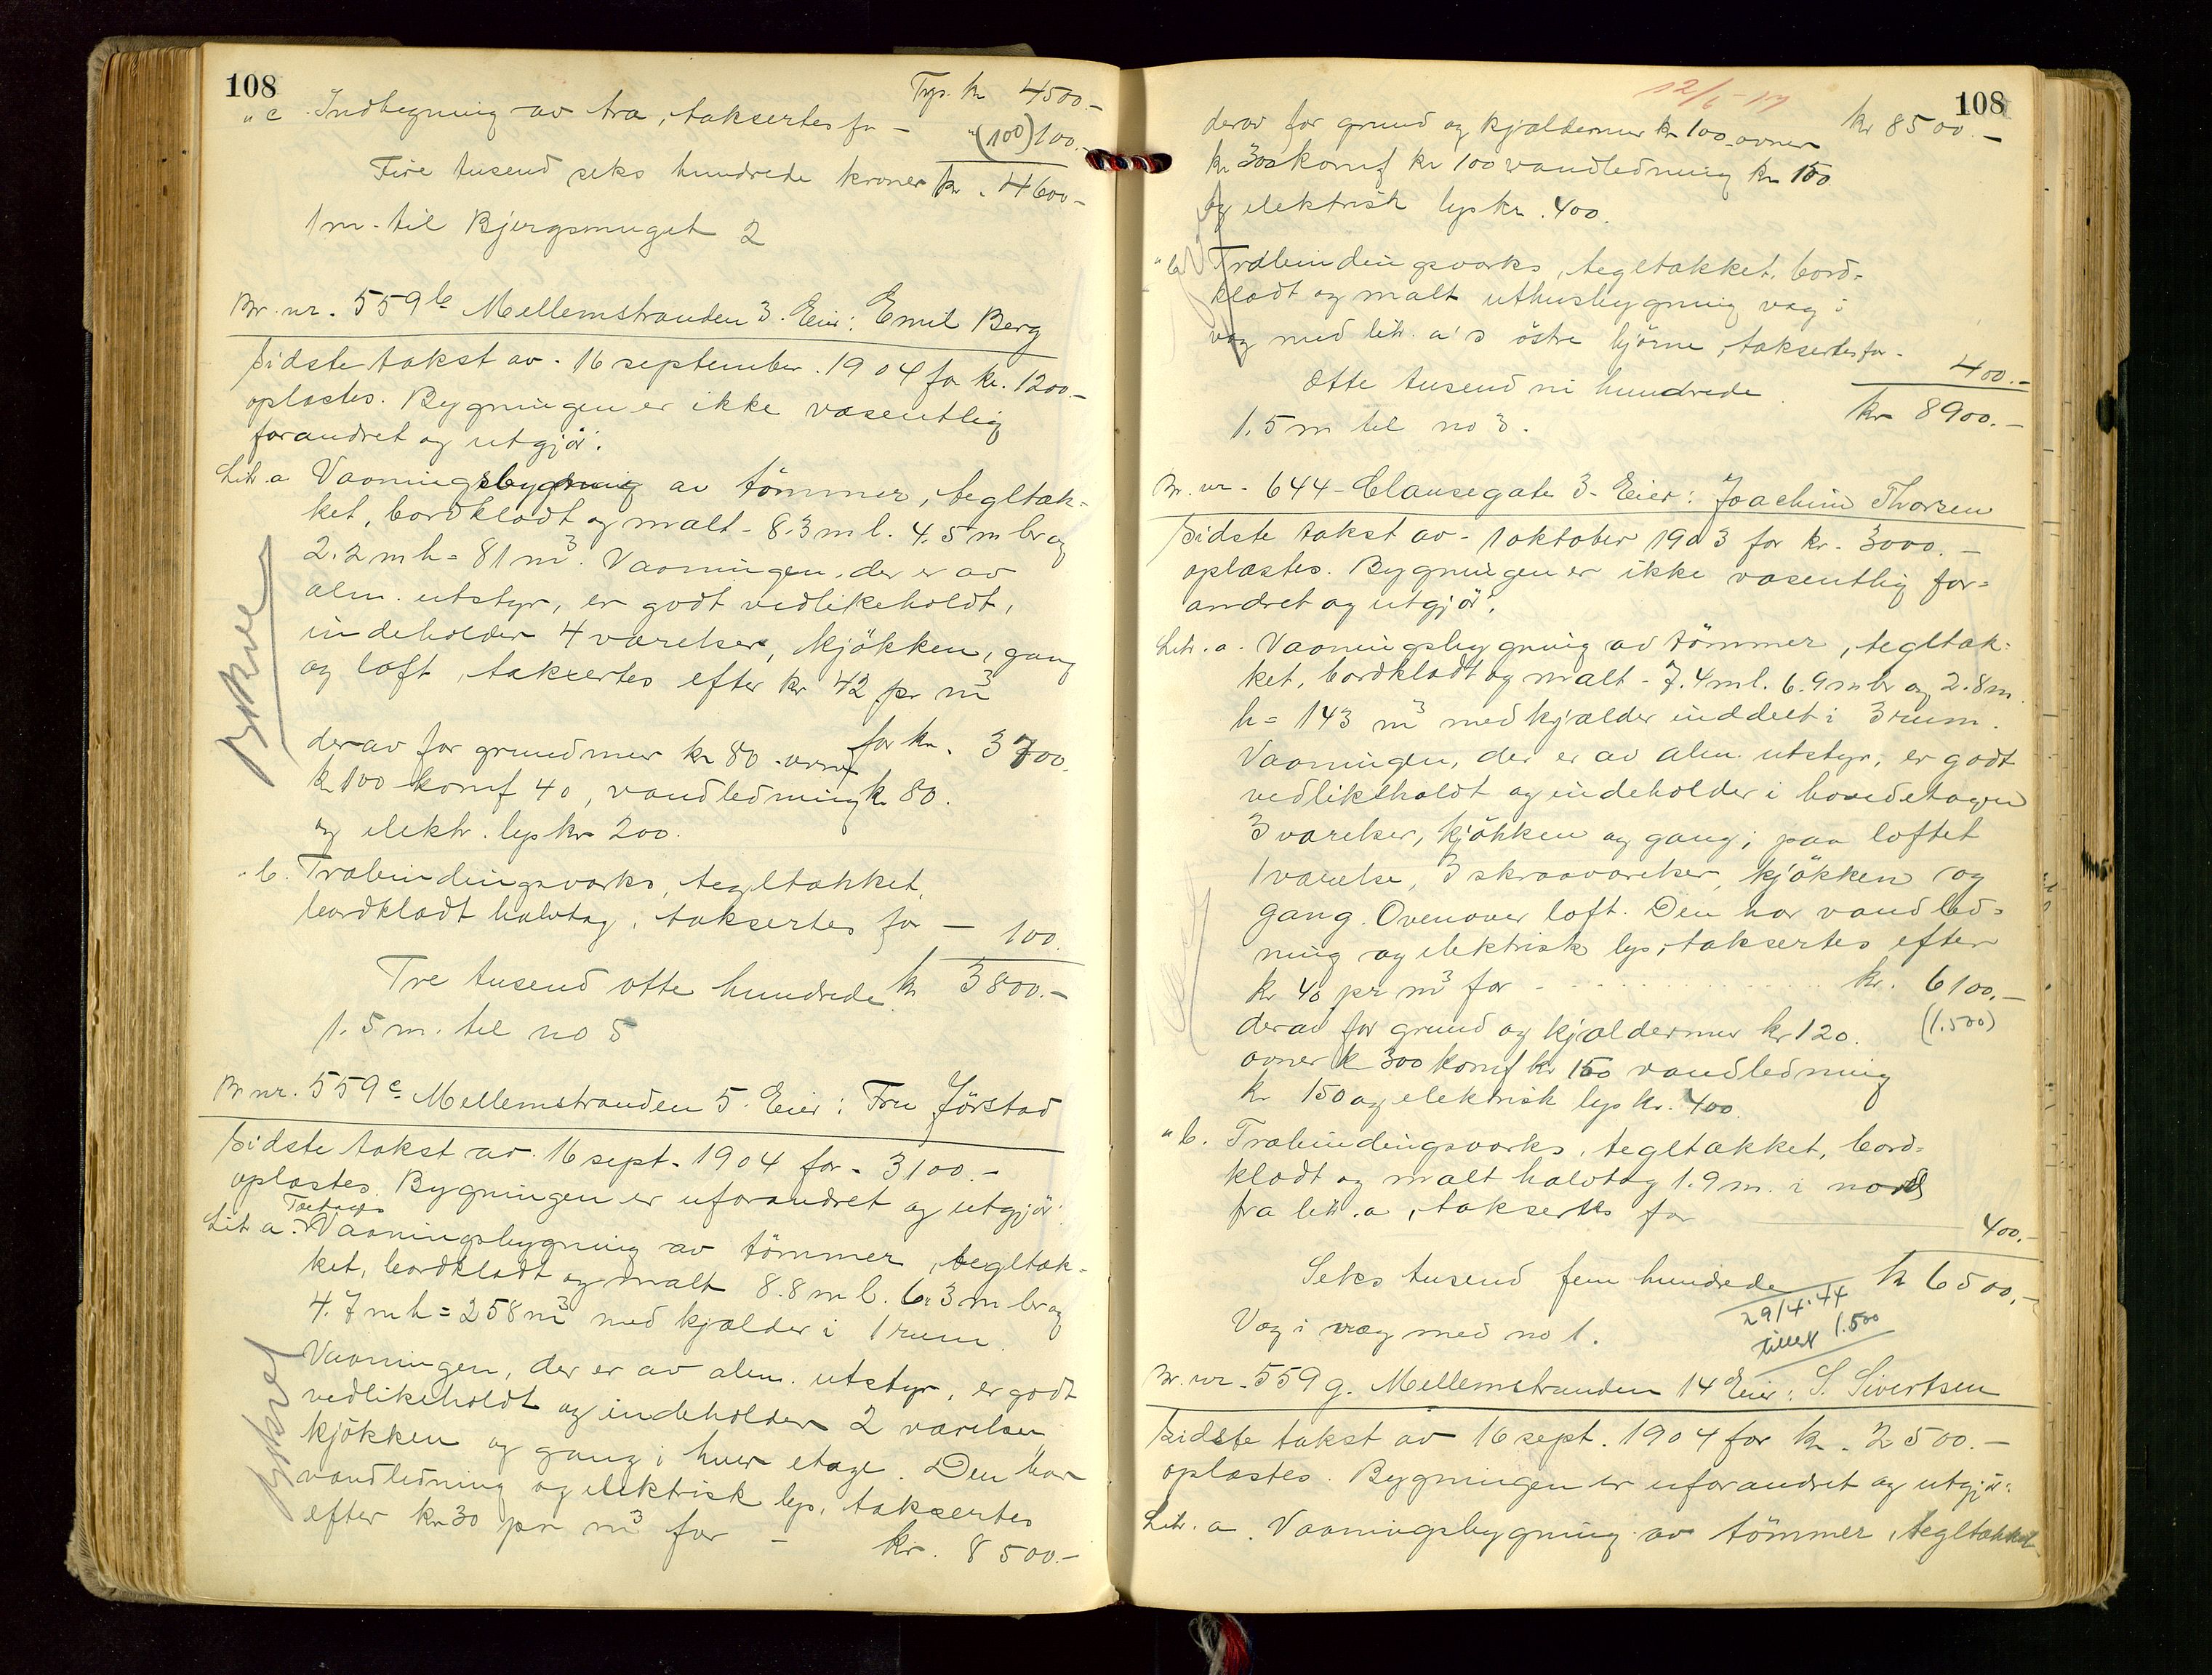 108
Trp. kr 4500.-
" c. Indbygning av træ, taksertes for - (100) 100.-
Fire tusend seks hundrede kroner kr. 4600.-
1 m. til Bjergsmuget 2
Br. nr. 559 b Mellemstranden 3. Eier: Emil Berg
Sidste takst av 16 september 1904 for kr. 1200.-
oplæstes. Bygningen er ikke væsentlig
forandret og utgjör:
Litr. a Vaaningsbygning av tömmer, tegltæk-
ket, bordklædt og malt - 8.3 m l. 4.5 m br og
2.2 m h = 81 m³. Vaaningen, der er av
alm. utstyr, er godt vedlikeholdt,
indeholder 4 værelser, kjökken, gang
og loft, taksertes efter kr 42 pr m³
for kr. 3700.
derav for grundmur kr 80 ovner
kr 100 komf 40, vandledning kr 80.
og elektr. lys kr 200.
" b. Træbindingsværks, tegltækket,
bordklædt halvtag, taksertes for - 100.
Tre tusend otte hundrede kr 3800.-
1.5 m. til no 5
Br nr. 559 c Mellemstranden 5. Eier: Fru Jörstad
Sidste takst av 16 sept. 1904 for - 3100.-
oplæstes. Bygningen er uforandret og utgjör:
Toetages
Litr a. Vaaningsbygning av tömmer, tegltæk-
ket, bordklædt og malt 8.8 m l. 6.3 m br og
4.7 m h = 258 m³ med kjælder i 1 rum.
Vaaningen, der er av alm. utstyr, er godt
vedlikeholdt og indeholder 2 værelser
kjökken og gang i hver etage. Den har
vandledning og elektrisk lys, taksertes
efter kr 30 pr m³ for - kr. 8500.-
108
12/6-17
kr 8500.-
derav for grund og kjældermur kr 100 ovner
kr 300 komf kr 100 vandledning kr 150
og elektrisk lys kr. 400.
" b. Træbindingsværks, tegltækket, bord-
klædt og malt uthusbygning væg i
væg med litr. a's östre hjörne, taksertes for - 400.-
Otte tusend ni hundrede kr 8900.-
1.5 m til no 3.
Br. nr. 644 - Clausegate 3 - Eier: Joachim Thorsen
Sidste takst av 1 oktober 1903 for kr. 3000.-
oplæstes. Bygningen er ikke væsentlig for-
andret og utgjör:
Litr. a. Vaaningsbygning av tömmer, tegltæk-
ket, bordklædt og malt - 7.4 m l. 6.9 m br og 2.8 m
h = 143 m³ med kjælder inddelt i 3 rum.
Vaaningen, der er av alm. utstyr, er godt
vedlikeholdt og indeholder i hovedetagen
3 værelser, kjökken og gang; paa loftet
1 værelse, 3 skraaværelser, kjökken og
gang. Ovenover loft. Den har vandled-
ning og elektrisk lys, taksertes efter
kr 40 pr m³ for - kr. 6100.-
(1.500)
derav for grund og kjældermur kr 120.
ovner kr 300 komf kr 150 vandledning
kr 150 og elektrisk lys kr. 400.
" b. Træbindingsværks, tegltækket, bord-
klædt og malt halvtag 1.9 m. i nord
fra litr. a, taksertes for 400.-
Seks tusend fem hundrede kr 6500.-
29/4-44
tillæg 1.500
Væg i væg med no 1.
Br. nr. 559 g. Mellemstranden 14 Eier: S. Sivertsen
Sidste takst av 16 sept. 1904 for kr. 2500.-
oplæstes. Bygningen er uforandret og utgjör:
Litr. a. Vaaningsbygning av tömmer, tegltækket